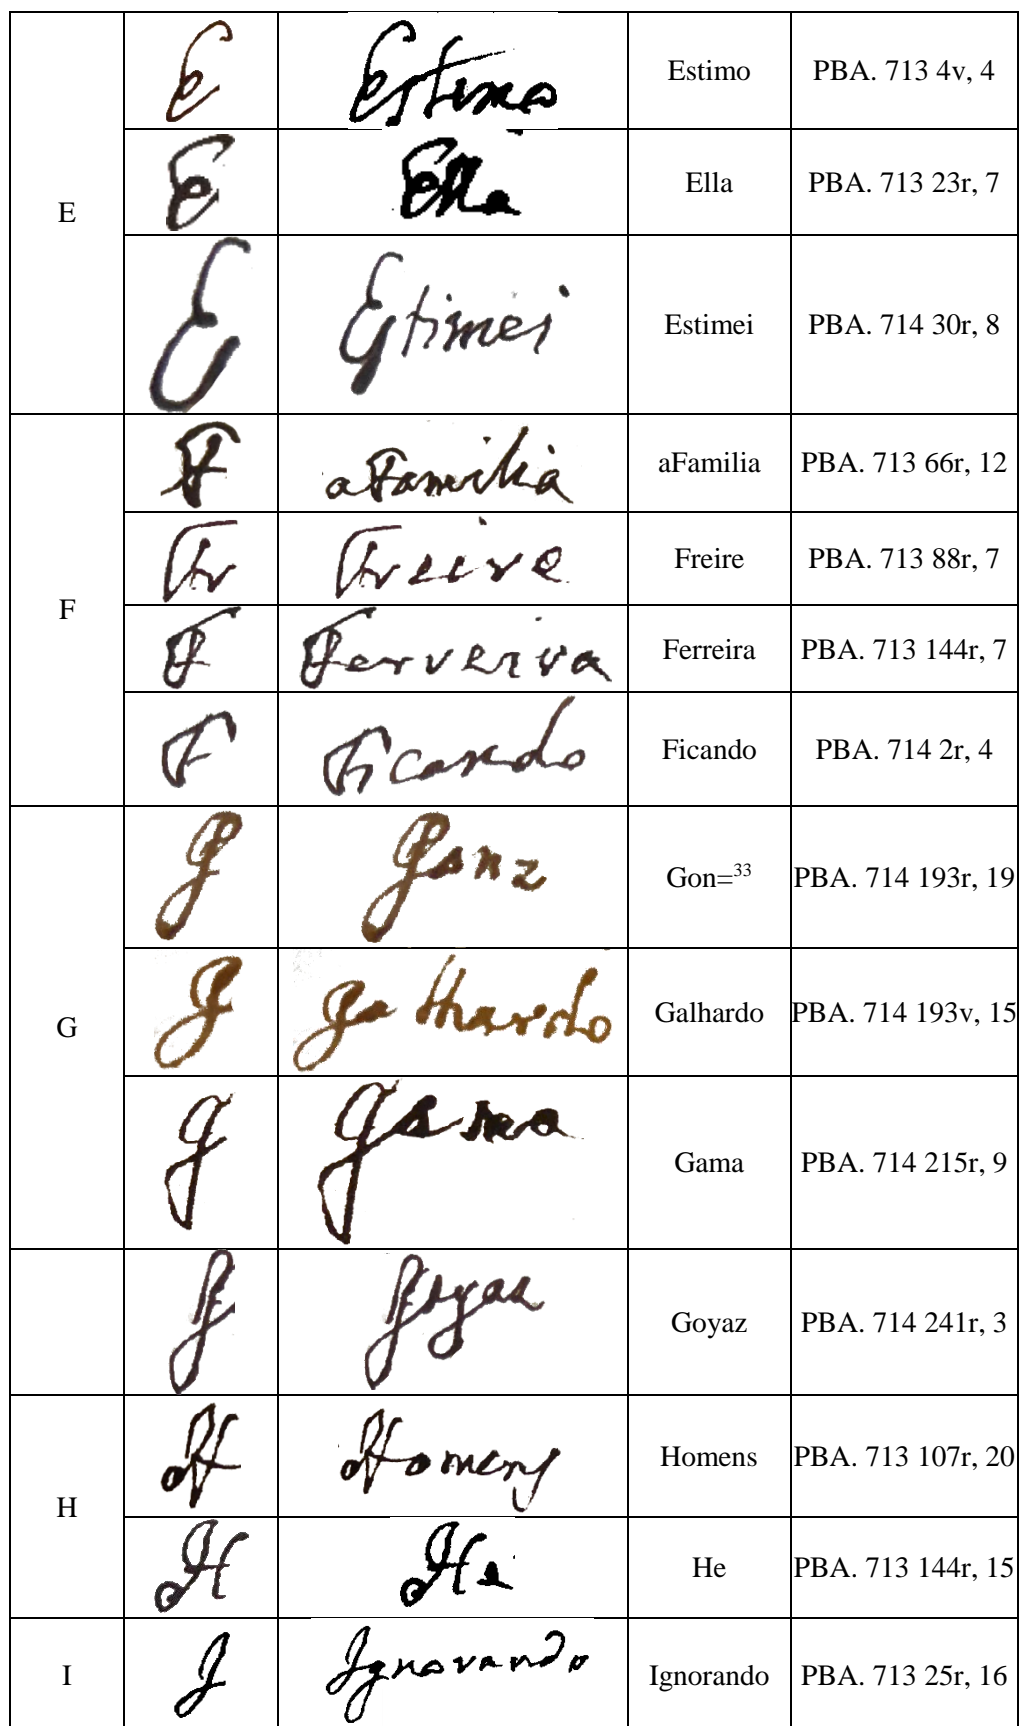 E E Estimo Estimo PBA. 713 4v, 4
E Ella Ella PBA. 713 23r, 7
E Estimei Estimei PBA. 714 30r, 8
F F aFamilia aFamilia PBA. 713 66r, 12
Fr Freire Freire PBA. 713 88r, 7
F Ferreira Ferreira PBA. 713 144r, 7
F Ficando Ficando PBA. 714 2r, 4
G G Gonz Gon=33 PBA. 714 193r, 19
G Galhardo Galhardo PBA. 714 193v, 15
G Gama Gama PBA. 714 215r, 9
G Goyaz Goyaz PBA. 714 241r, 3
H H Homens Homens PBA. 713 107r, 20
H He He PBA. 713 144r, 15
I I Ignorando Ignorando PBA. 713 25r, 16